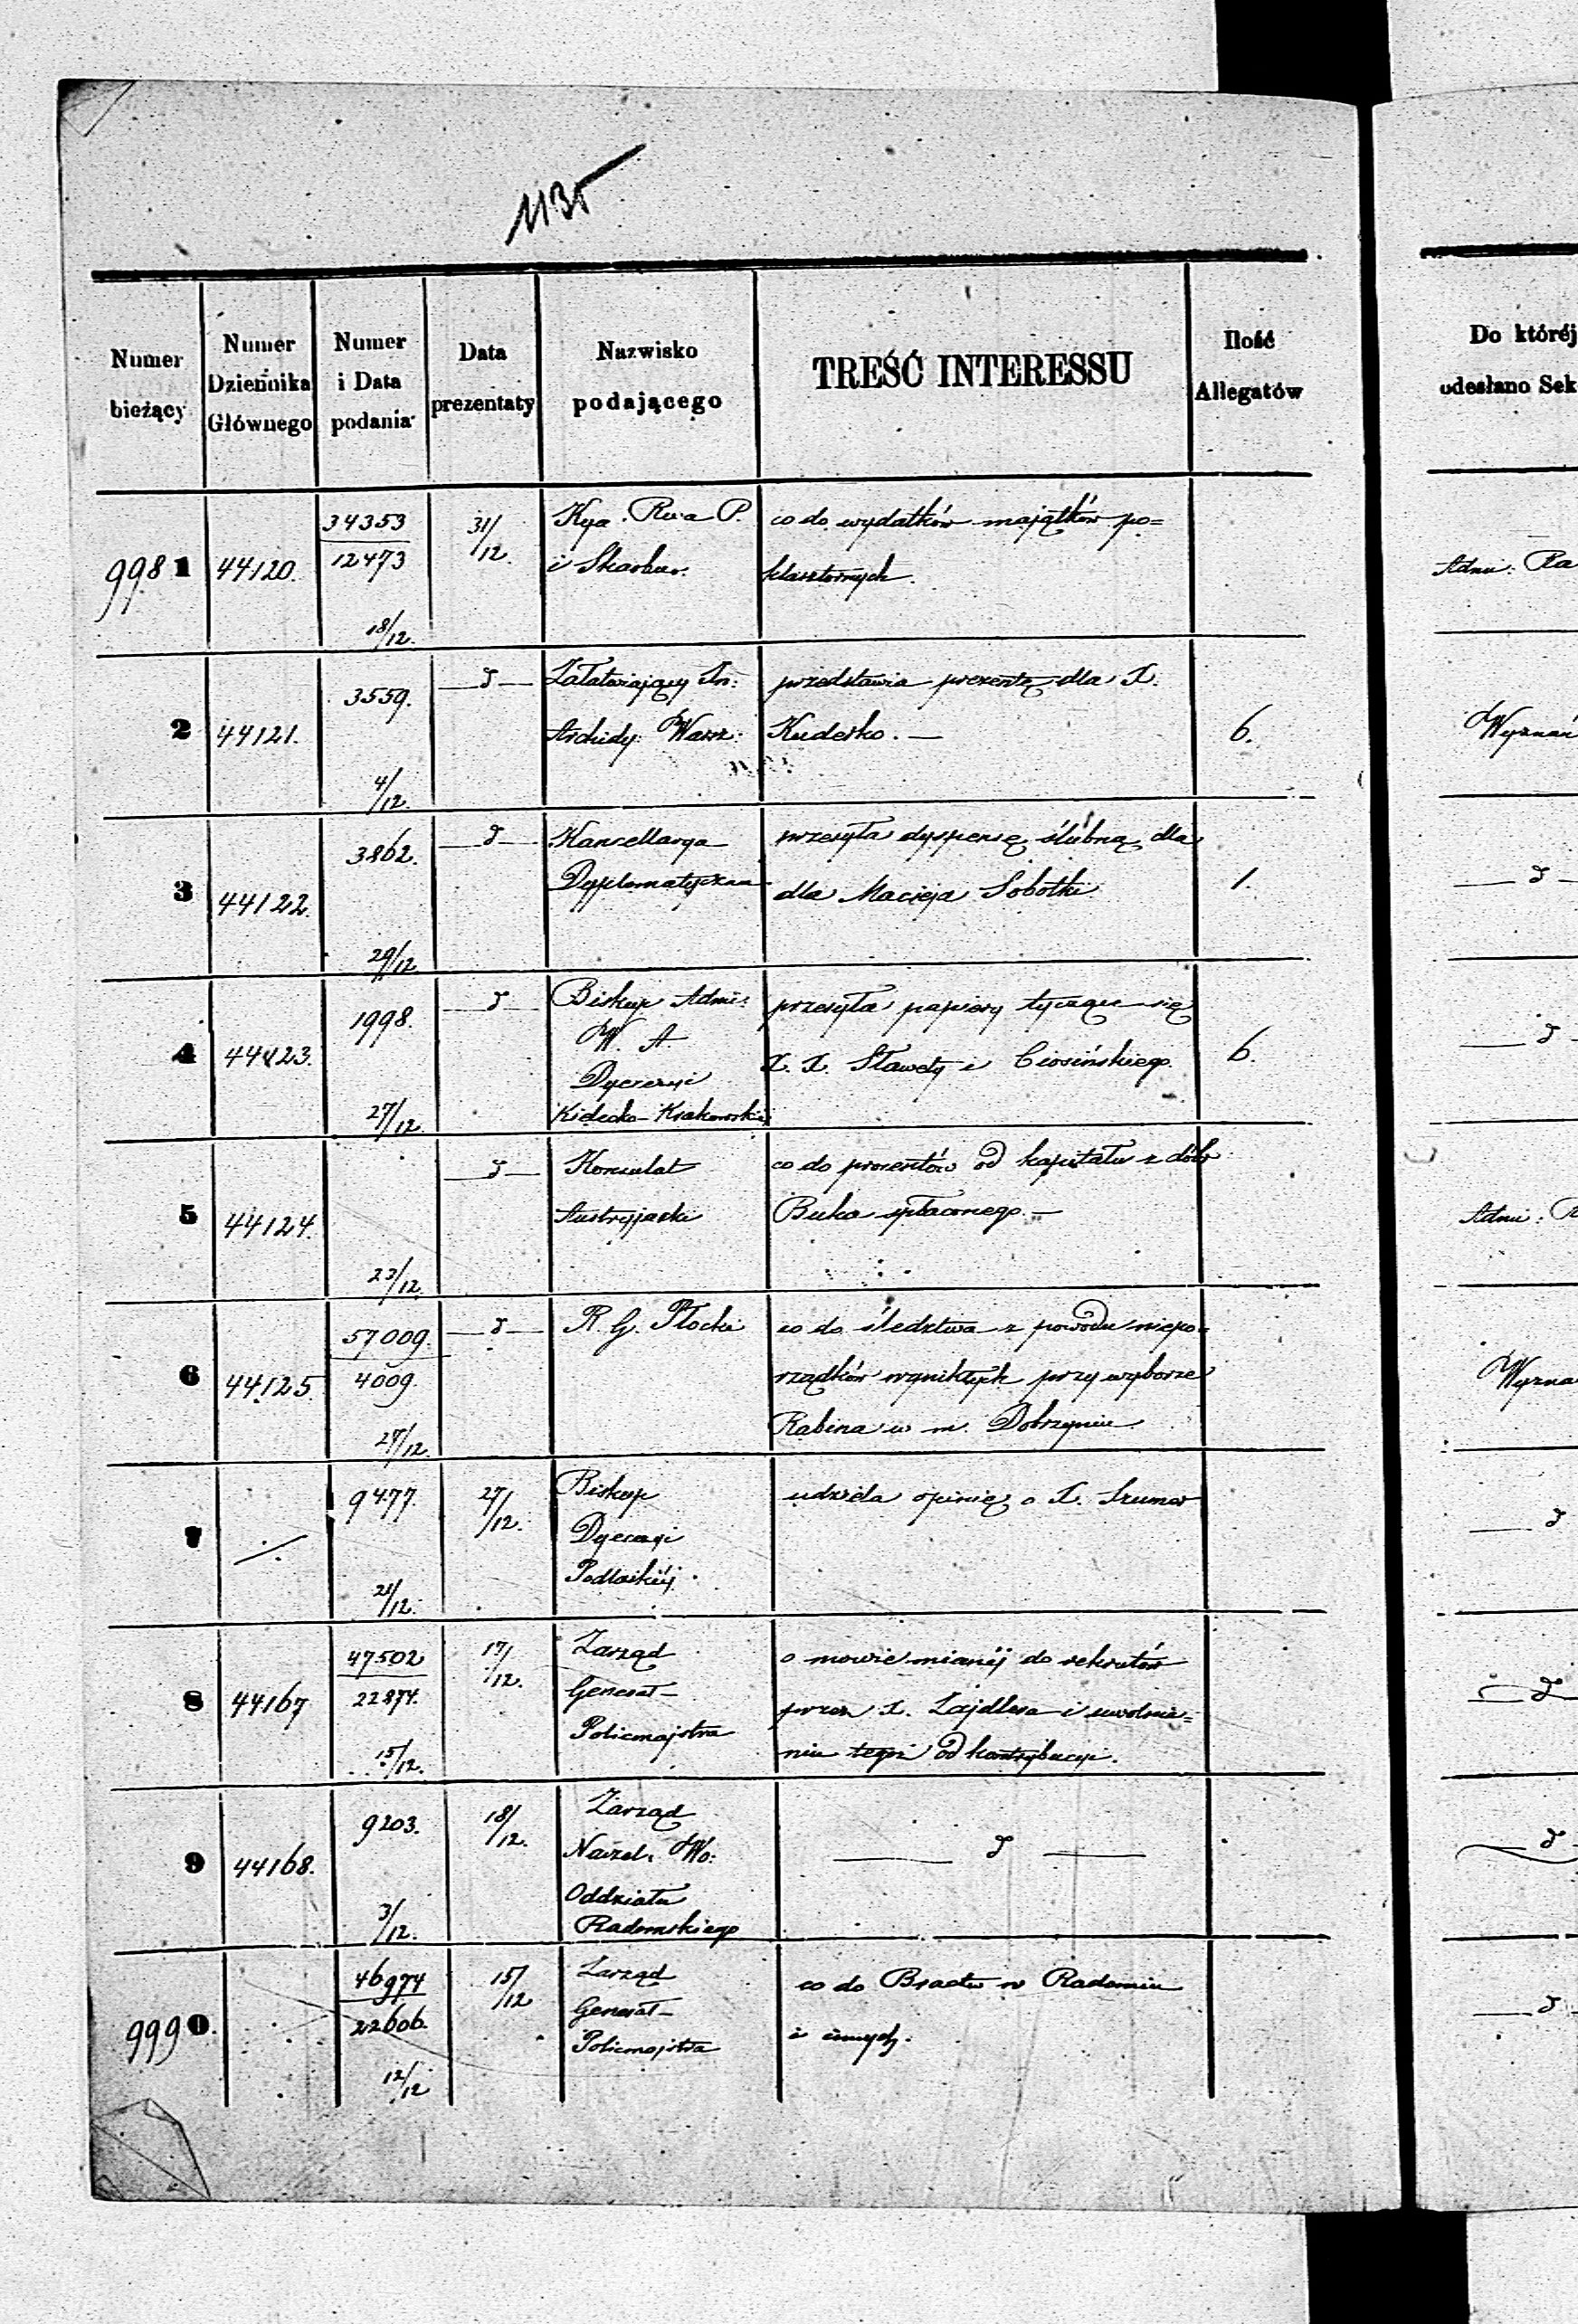 1135
Numer bieżący
Numer Dziennika Głównego
Numer i Data podania
Data prezentaty
Nazwisko podającego
TREŚĆ INTERESSU
Ilość Allegatów
Do któréj
odesłano Sek
9981 44120. 34353 / 12473 18/12. 31/12. Kya. Rwa P.
i Skarbu.
co do wydatków majątków po=
klasztornych.
Adm: Ra
2 44121. 3559. 4/12. — d — Załatwiający In:
Archidy: Warsz:
przedstawia prezentę dla X.
Kudesko. —
6.
Wyznań
3 44122. 3862. 29/12 — d — Kancellarya
Dyplomatyczna
przesyła dyspensę ślubną dla
dla Macieja Sobotki
1.
— d —
4 44123. 1998. 27/12. — d — Biskup Admi:
W. A.
Dyecezyi
Kielecko-Krakowskiej
przesyła papiery tyczące się
X. X. Sławety i Ciosińskiego.
6.
— d —
5 44124. 23/12. — d — Konsulat
Austryjacki
co do procentów od kapitału z dóbr
Buka spłaconego. —
Adm: R
6 44125 57009. / 4009. 27/12. — d — R. G. Płocki
co do śledztwa z powodu niepo=
rządków wynikłych przy wyborze
Rabina w m. Dobrzyniu
Wyzna
7 ./. 9477. 21/12. 27/12. Biskup
Dyecezyi
Podlaskiéj.
udziela opinię o X. Szumow
— d
8 44167 47502 / 22874. 15/12. 17/12. Zarząd
Generał-
Policmajstra
o mowie mianéj do rekrutów
przez X. Zajdlera i uwolnie=
niu tegoż od kontrybucyi.
— d
9 44168. 9203. 3/12. 18/12. Zarząd
Naczel. Wo:
Oddziału
Radomskiego
— d —
— d —
9990. 46974 / 22606. 12/12 15/12 Zarząd
Generał-
Policmajstra
co do Bractw w Radomiu
i innych.
— d